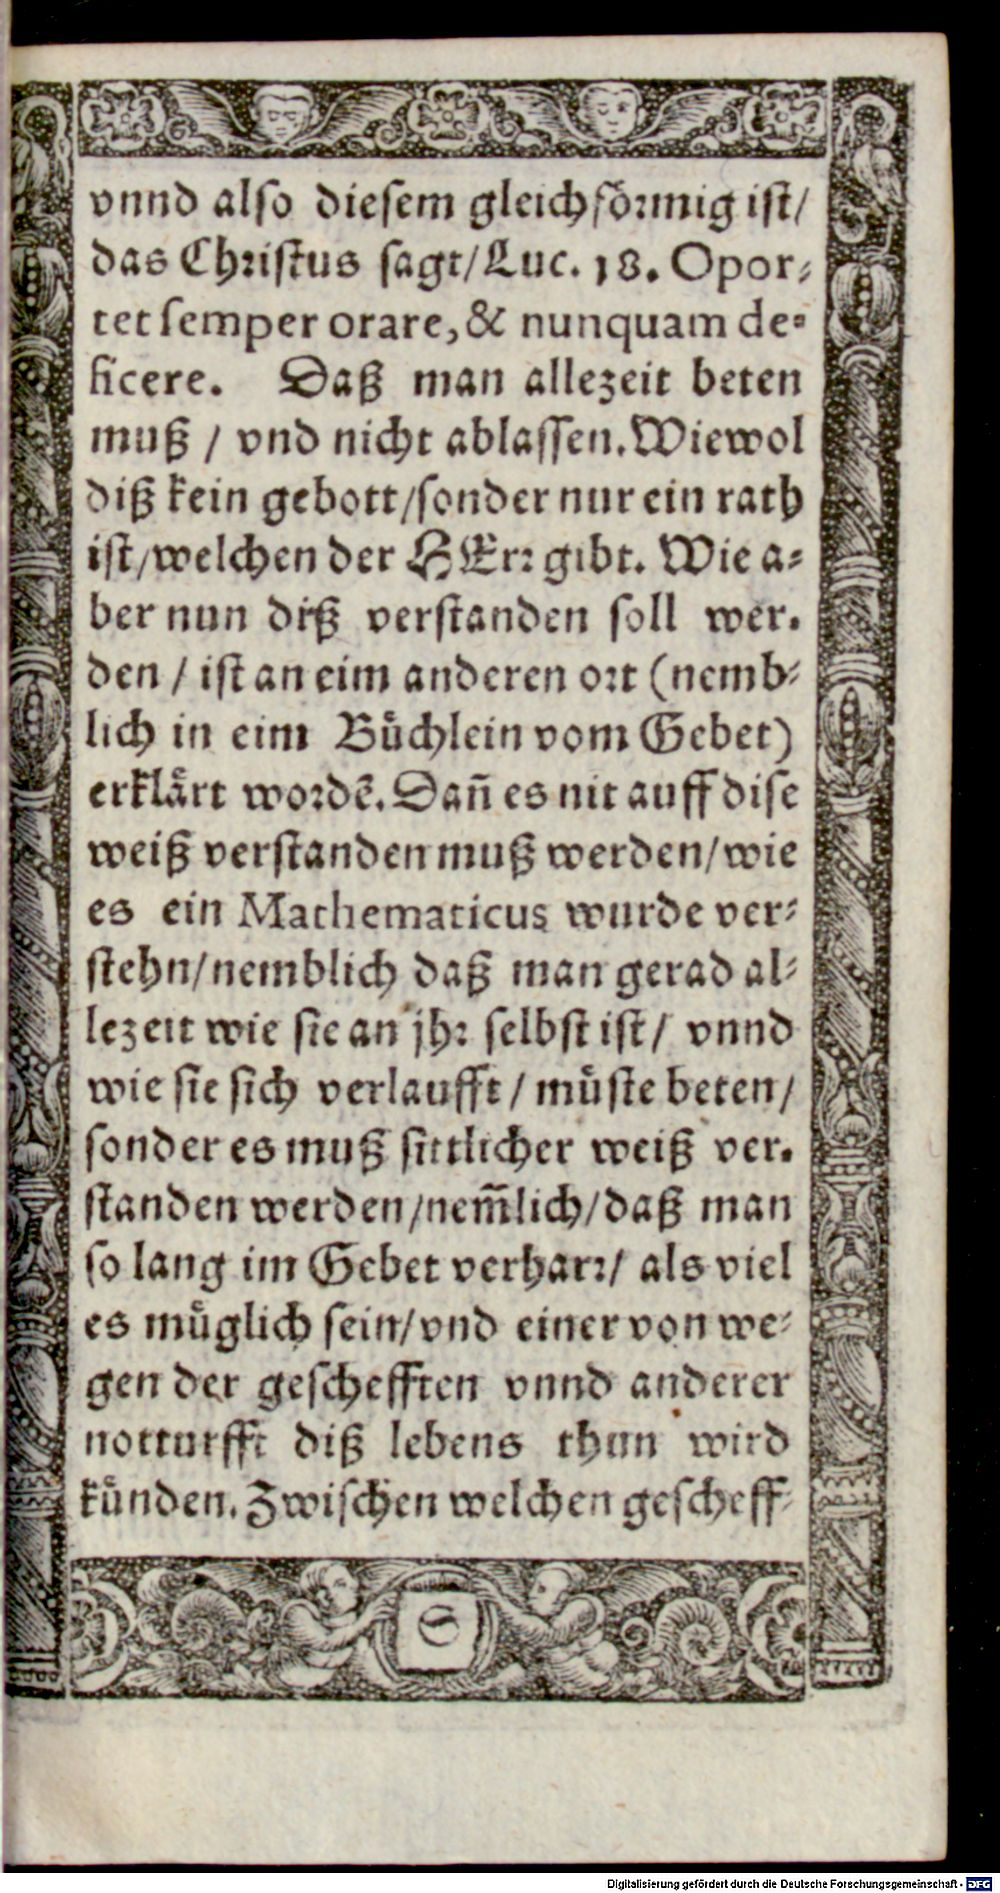 vnnd also diesem gleichförmig ist/
das Christus sagt/Luc. 18. Opor-
tet semper orare, & nunquam de-
ficere. Daß man allezeit beten
muß / vnd nicht ablassen. Wiewol
diß kein gebott/sonder nur ein rath
ist/welchen der HErr gibt. Wie a-
ber nun diß verstanden soll wer-
den / ist an eim anderen ort (nemb-
lich in eim Bůchlein vom Gebet)
erklårt wordẽ. Dañ es nit auff dise
weiß verstanden muß werden/wie
es ein Mathematicus wurde ver-
stehn/nemblich daß man gerad al-
lezeit wie sie an jhr selbst ist/ vnnd
wie sie sich verlaufft/ můste beten/
sonder es muß sittlicher weiß ver-
standen werden/nem̃lich/daß man
so lang im Gebet verharr/ als viel
es můglich sein/vnd einer von we-
gen der geschefften vnnd anderer
notturfft diß lebens thun wird
kůnden. Zwischen welchen gescheff-
S
Digitalisierung gefördert durch die Deutsche Forschungsgemeinschaft - DFG